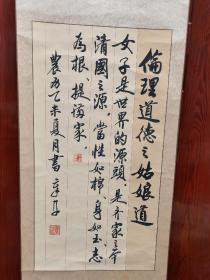 倫理道德之姑娘道
女子是世界的源頭是齊家之本
清國之源當性如棉身如玉志
為根提滿家
農歷乙未夏月書